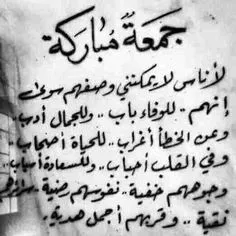 جمعة مباركة
لأناس لا يمكنني وصفهم سوى
إنهم.. للوفاء باب.. وللجمال أدب..
وعن الخطأ أغراب.. للحياة أصحاب..
وفي القلب أحباب.. وللسعادة أسباب..
وجوههم خفية.. نفوسهم رضية..
نقية.. وقربهم أجمل هدية..